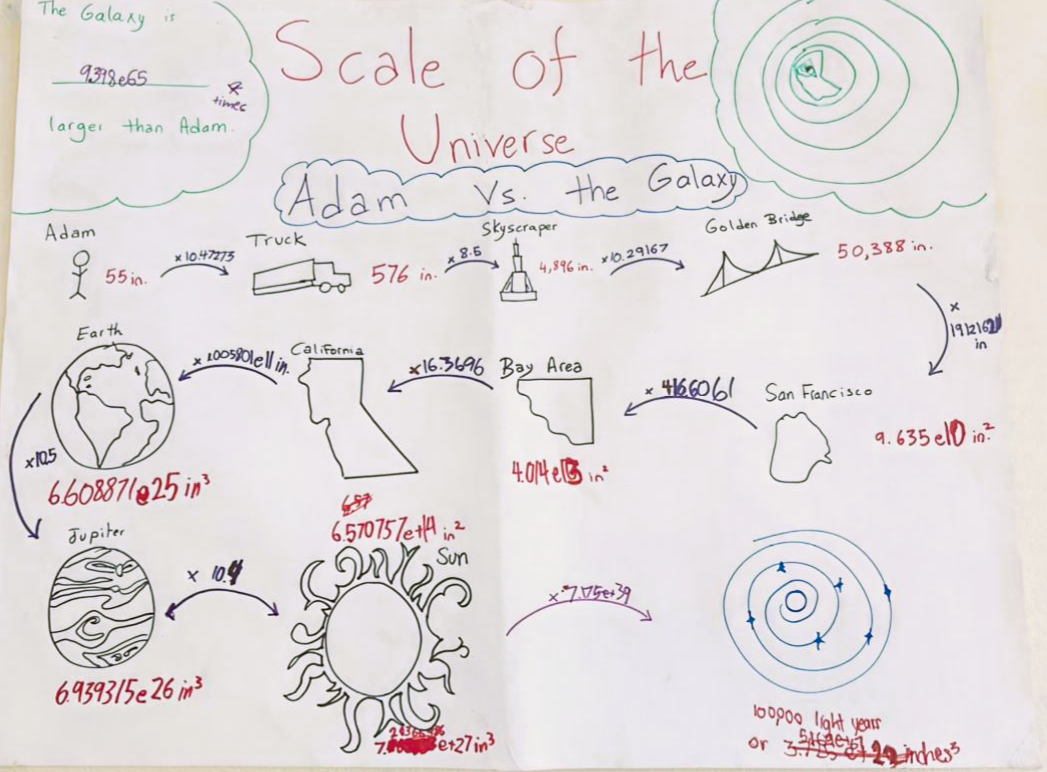 The Galaxy is
9.398e65 x
times
larger than Adam.
Scale of the
Universe
Adam Vs. the Galaxy
Adam
55 in.
x 10.47273
Truck
576 in.
x 8.5
Skyscraper
4,896 in.
x10.29167
Golden Bridge
50,388 in.
x
1912162
in
San Francisco
9.635e10 in.²
x 416.6061
Bay Area
4.014e13 in²
x16.3696
California
6.570757e+14 in²
x 1.005801e11 in.
Earth
6.608871e25 in³
x10.5
Jupiter
6.939315e26 in³
x 10.4
Sun
e+27 in³
x 7.175e+39
100,000 light years
or inches³